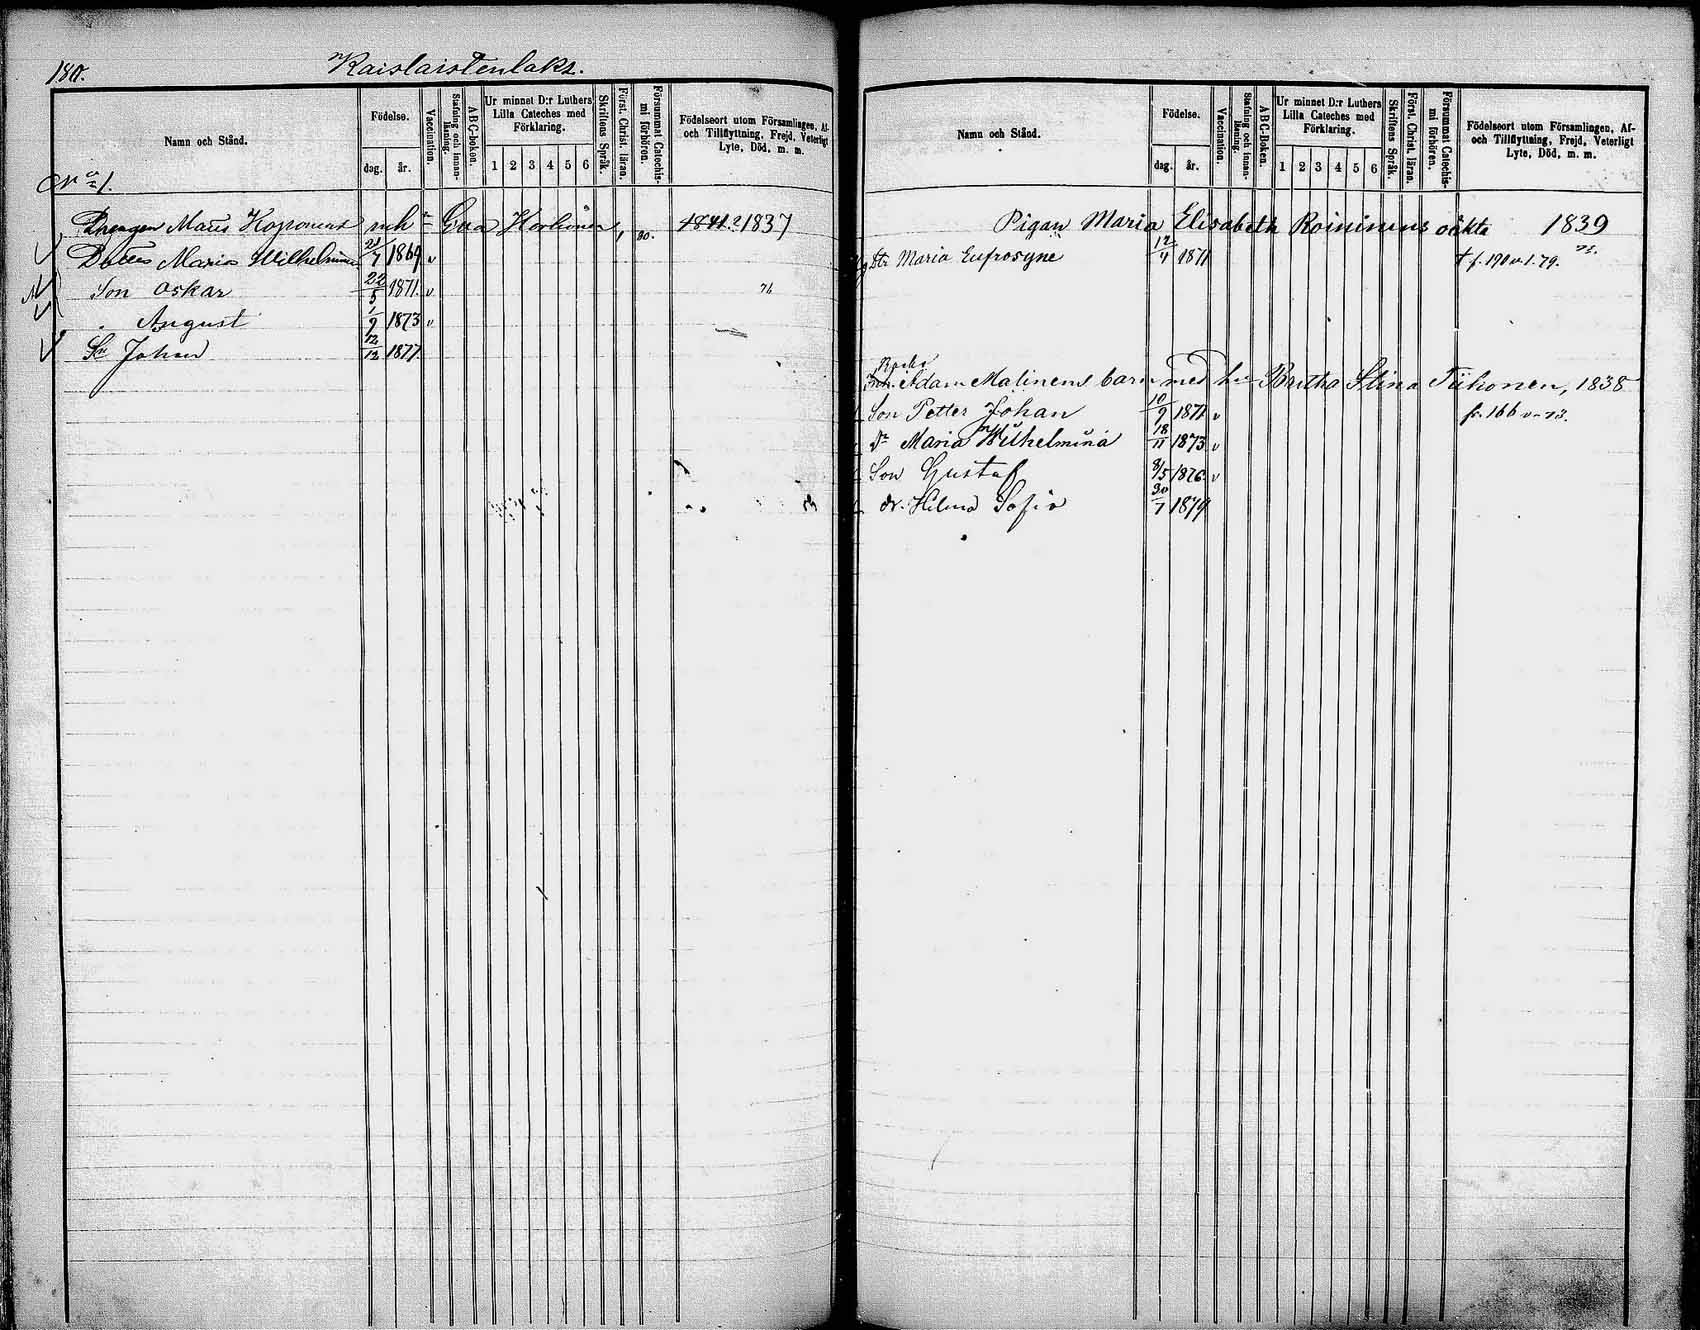 180.
Kaislaistenlaks.
Namn och Stånd.
Födelse.
dag.
år.
Vaccination.
Stafning och innan-
läsning.
A B C-boken.
Ur minnet D:r Luthers
Lilla Cateches med
Förklaring.
1 2 3 4 5 6
Skriftens Språk.
Först. Christ. läran.
Försummat Catechis-
mi förhören.
Födelseort utom Församlingen, Af-
och Tillflyttning, Frejd, Veterligt
Lyte, Död, m. m.
No 1.
Drengen Mats Koponens och Eva 30. 1841 1837
Maria Wilhelmina 1869 v
Son Oskar 22/5 1871 v 76
August 1/9 1873 v
Sn Johan 12/12 1877
Namn och Stånd.
Födelse.
dag.
år.
Vaccination.
Stafning och innan-
läsning.
A B C-boken.
Ur minnet D:r Luthers
Lilla Cateches med
Förklaring.
1 2 3 4 5 6
Skriftens Språk.
Först. Christ. läran.
Försummat Catechis-
mi förhören.
Födelseort utom Församlingen, Af-
och Tillflyttning, Frejd, Veterligt
Lyte, Död, m. m.
Pigan Maria Elisabeth Roininens oäkta 1839
Dtr Maria Eufrosyne 1871 f. 190 v. 1. 79.
Adam Malinens barn med Britha Stina Tiihonen, 1838
Son Petter Johan 10/9 1871 v fr. 166 v 73.
Dr Maria Wilhelmina 18/11 1873 v
Son Gustaf 8/5 1876 v
dr. Hilma Sofia 30/7 1879